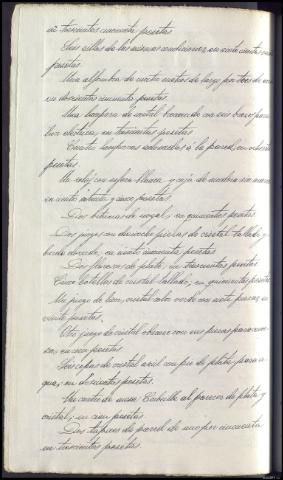 en trescientas cincuenta pesetas.
Seis sillas de las mismas condiciones, en siete cientas
pesetas.
Una alfombra de cuatro metros de largo por tres de
en doscientas cincuenta pesetas.
Una lampara de cristal con seis luces para
luz electrica, en trescientas pesetas.
Cuatro lamparas adosadas á la pared, en ochenta
pesetas.
Un reloj con esfera blanca y caja de madera sin marca
en veinte y cinco pesetas.
Dos vitrinas de nogal, en quinientas pesetas.
Dos juegos con dieciocho piezas de cristal tallado y
borde dorado, en ciento cincuenta pesetas.
Dos floreros de plata, en trescientas pesetas.
Cinco botellas de cristal tallado, en quinientas pesetas.
Un juego de licor, cristal color verde con siete piezas, en
veinte pesetas.
Otro juego de cristal con seis piezas para
en cien pesetas.
Seis copas de cristal azul con pie de plata, para a-
gua, en doscientas pesetas.
Un centro de mesa al parecer de plata y
cristal, en cien pesetas.
Dos tapices de pared de uno por cincuenta
en trescientas pesetas.